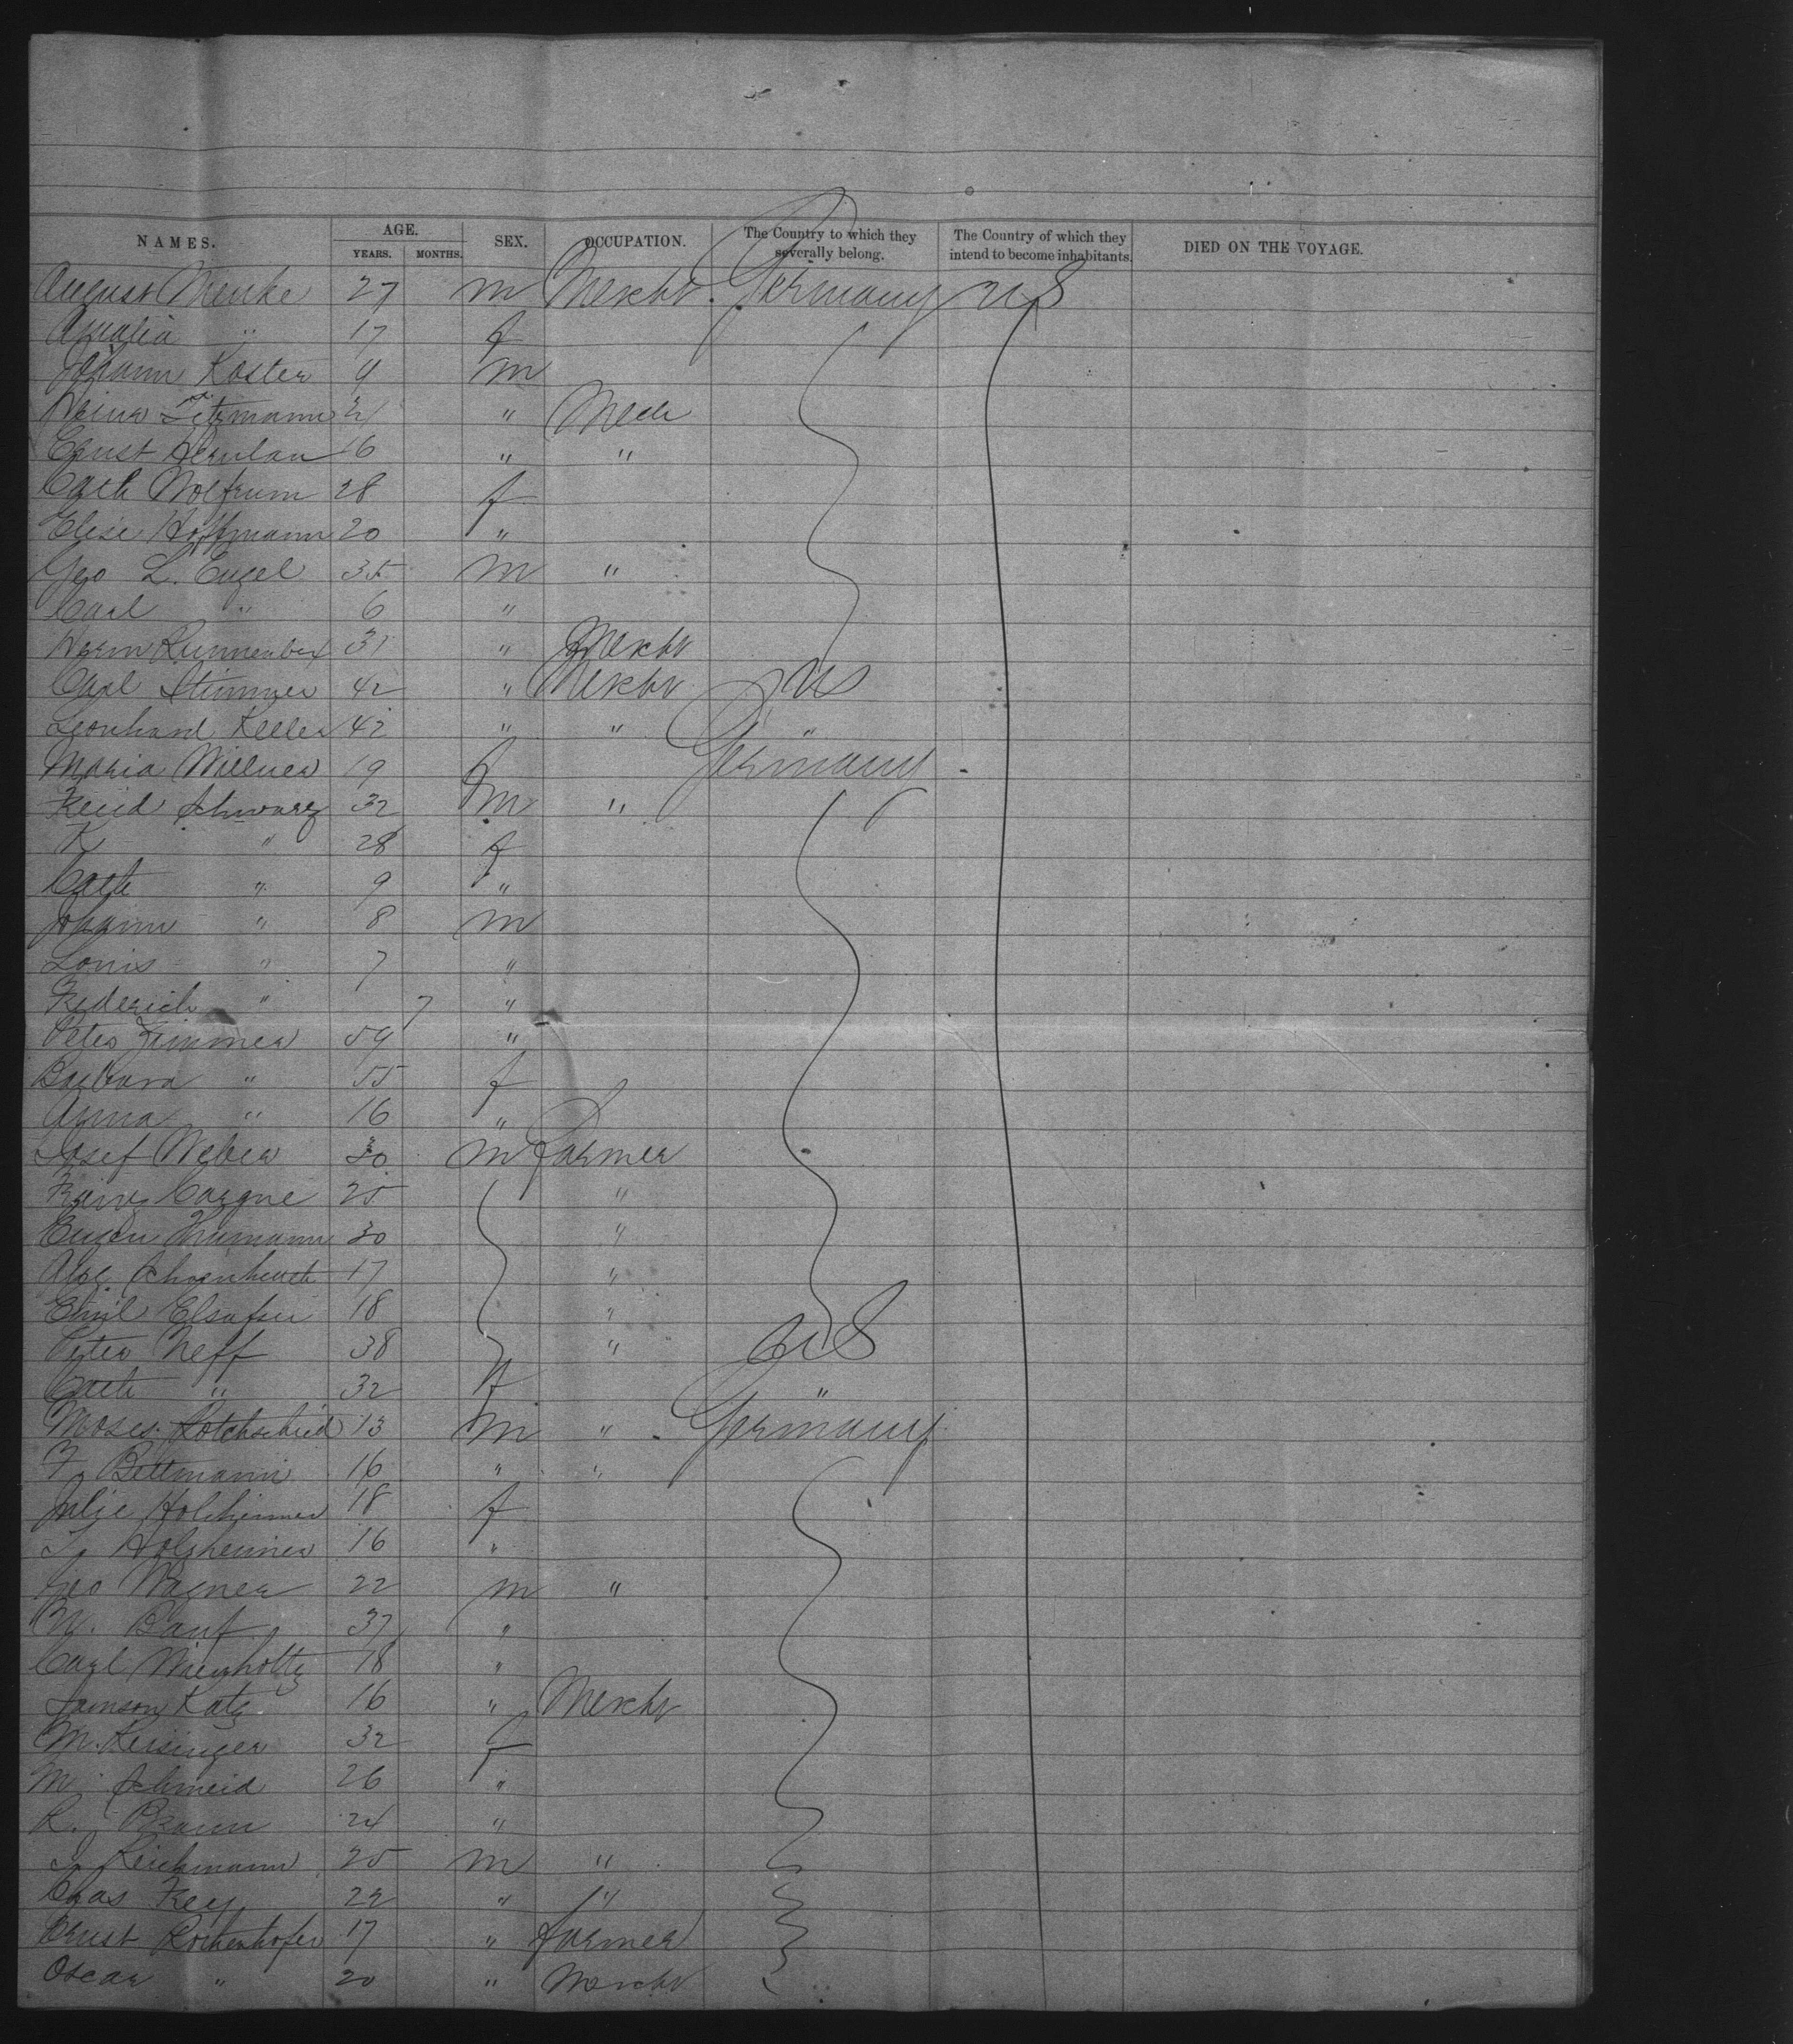 NAMES. AGE. YEARS. MONTHS. SEX. OCCUPATION. The Country to which they severally belong. The Country of which they intend to become inhabitants. DIED ON THE VOYAGE.
August Menke 27 m Mercht Germany U S
Amalia " 17 f
Johann Koster 9 m
Heinr 21 " Mech
Ernst 16 " "
Cath Wolfrum 28 f
Elise Hoffmann 20 "
Geo L. Engel 35 m "
Carl " 6 "
Herm 31 " Mercht
Carl Stimmer 42 " Mercht U S
Leonhard Keller 42 " " "
Maria Willner 19 f Germany
Schwarz 32 m "
K " 28 f
Cath " 9 "
Johann " 8 m
Louis " 7 "
Frederich " 7 "
Peter Zimmer 59 "
Barbara " 55 f
Anna " 16 "
Josef Weber 30 m Farmer
25 "
30 "
17 "
Emil 18 "
Peter Neff 38 " U S
Cath " 32 f "
Moses Rothschild 13 m " Germany
F. Bettmann 16 " "
Julie 18 f
Holzheimer 16 "
Geo Wagner 22 m "
37 "
Carl 18 "
Samson Katz 16 " Mercht
M. Kissinger 32 f
M. Schmeid 26 "
R. Braun 24 "
Reichmann 25 m "
Chas Frey 22 " "
Ernst 17 " Farmer
Oscar " 20 " Mercht